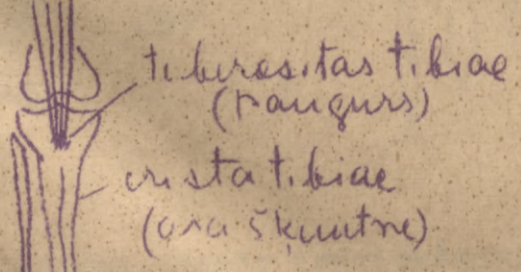 tuberositas tibiae
(paugurs)
crista tibiae
(asa šķautne)